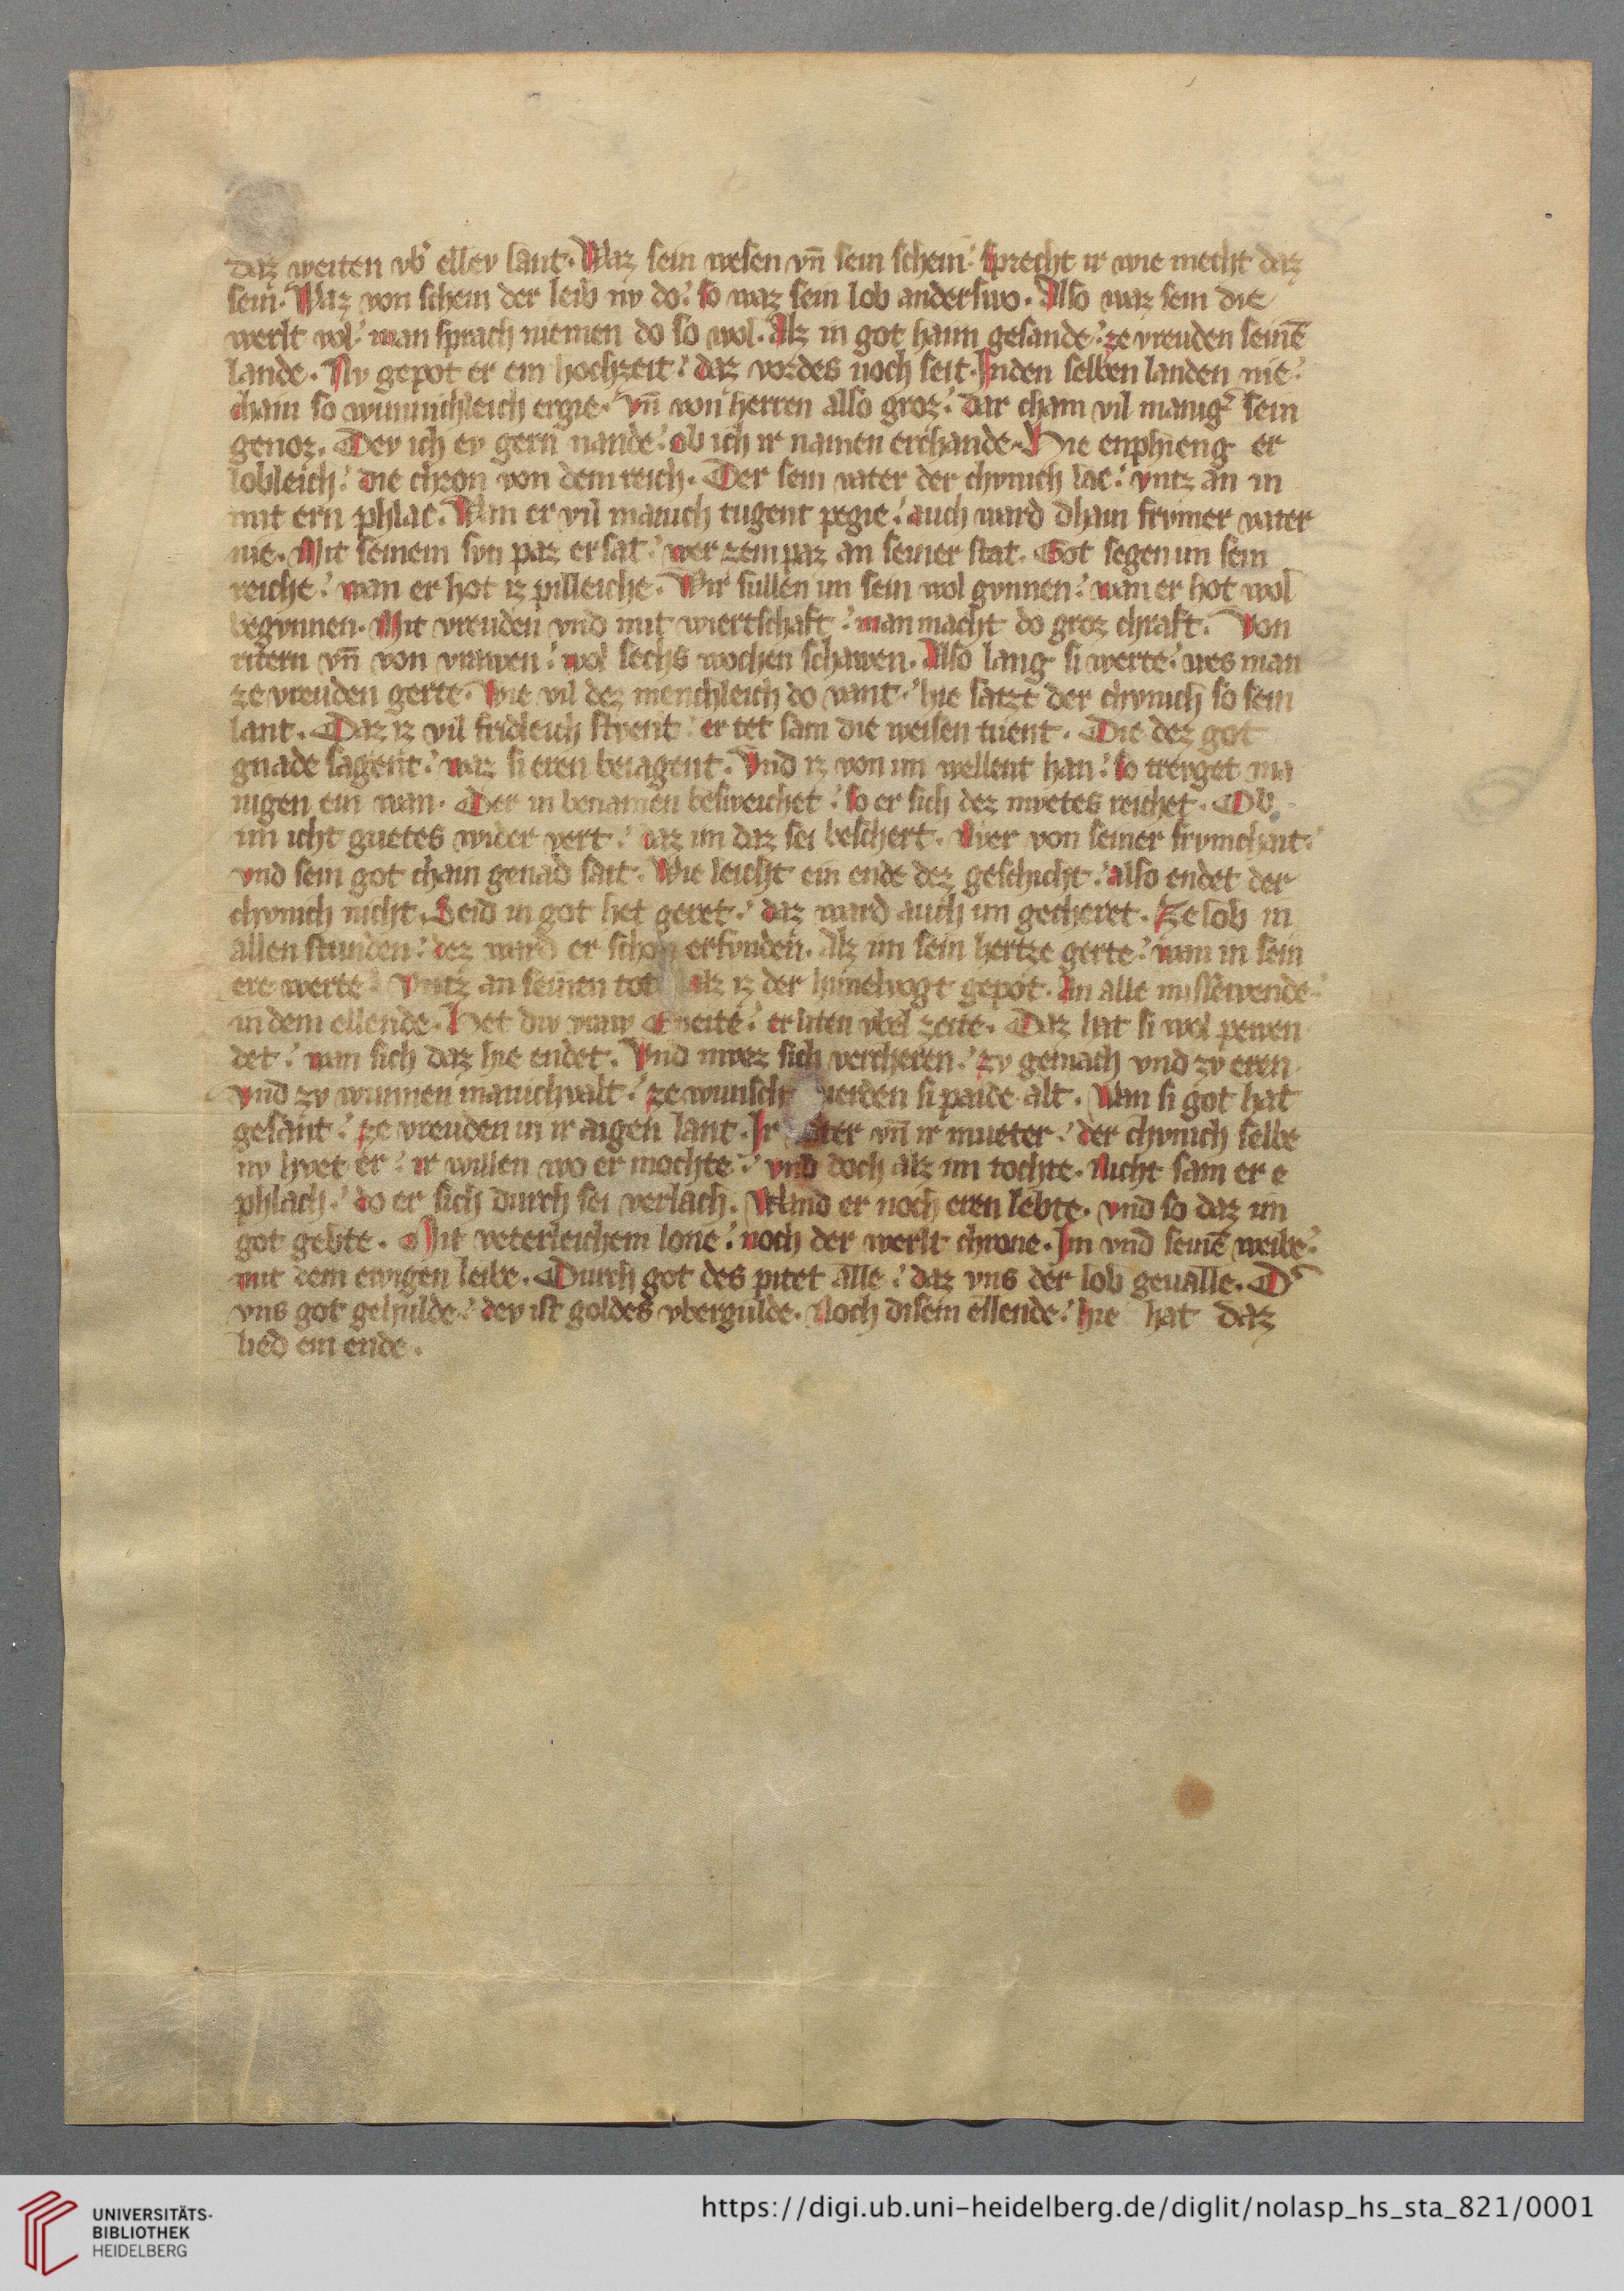 daz weiten vb͛ ellev lant. Waz sein wesen vn̄ sein schein: sprecht ir wie mecht daz
sein. Waz von schein der leib nv do: so waz sein lob anderswo. Also waz sein die
werlt vol: man sprach niemen do so wol. Alz in got haim gesande: ze vreuden seinē
lande. Nv gepot er ein hochzeit: daz vordes noch seit. Inden selben landen nie:
chain so wunnichleich ergie. Vn̄ von herren also groz: dar cham vil manig͛ sein
genoz. Dev ich ev gern nande: ob ich ir namen erchande. Hie enphieng er
lobleich: die chron von dem reich. Der sein vater der chvnich lac: vntz an in
mit ern phlac. Wan er vil manich tugent pegie: auch ward dhain frvmer vater
nie. Mit seinem svn paz ersat: wer zem paz an seiner stat. Got segen im sein
reiche: wan er hot iz pilleiche. Wir sullen im sein wol gvnnen: wan er hot wol
begvnnen. Mit vreuden vnd mit wiertschaft: man macht do groz chraft. Von
ritern vn̄ von vrawen: wol sechs wochen schawen. Also lang si werte: wes man
ze vreuden gerte. Wie vil dez menchleich do vant: hie satzt der chvnich so sein
lant. Daz iz vil fridleich stvent: er tet sam die weisen tuent. Die dez got
gnade sagent: waz si eren beiagent. Vnd iz von im wellent han: so trevget ma
nigen ein wan. Der in benamen besweichet: so er sich dez mvetes reichet. Ob
im icht guetes wider vert: daz im daz sei beschert. Nver von seiner frvmchait:
vnd sein got chain genad sait. Wie leicht ein ende dez geschicht: also endet der
chvnich nicht. Seid in got het geret: daz ward auch im gecheret. Ze lob in
allen stunden: dez ward er schon erfvnden. Alz im sein hertze gerte: wan in sein
ere werte: Vntz an seinen tot: alz iz der himelvogt gepot. An alle missewende
in dem ellende. Het div vraw Eneite: erliten vbel zeite. Daz hat si wol pewen
det: wan sich daz hie endet. Vnd mvez sich vercheren: zv gemach vnd zv eren
vnd zv wunnen manichvalt: ze wunsch werden si paide alt. Wan si got hat
gesant: ze vreuden in ir aigen lant. Ir vater vn̄ ir mueter: der chvnich selbe
nv hvet er: ir willen wo er mochte: vnd doch alz im tochte. Nicht sam er e
phlach: do er sich durch sei verlach. Wand er noch eren lebte. vnd so daz im
got gebte. Mit veterleichem lone: noch der werlt chrone. Im vnd seinē weibe:
mit dem ewigen leibe. Durch got des pitet alle: daz vns der lob gevalle. D͛
vns got gehulde: dev ist goldes vbergulde. Noch disem ellende: hie hat daz
lied ein ende.
UNIVERSITÄTS-
BIBLIOTHEK
HEIDELBERG
https://digi.ub.uni-heidelberg.de/diglit/nolasp_hs_sta_821/0001